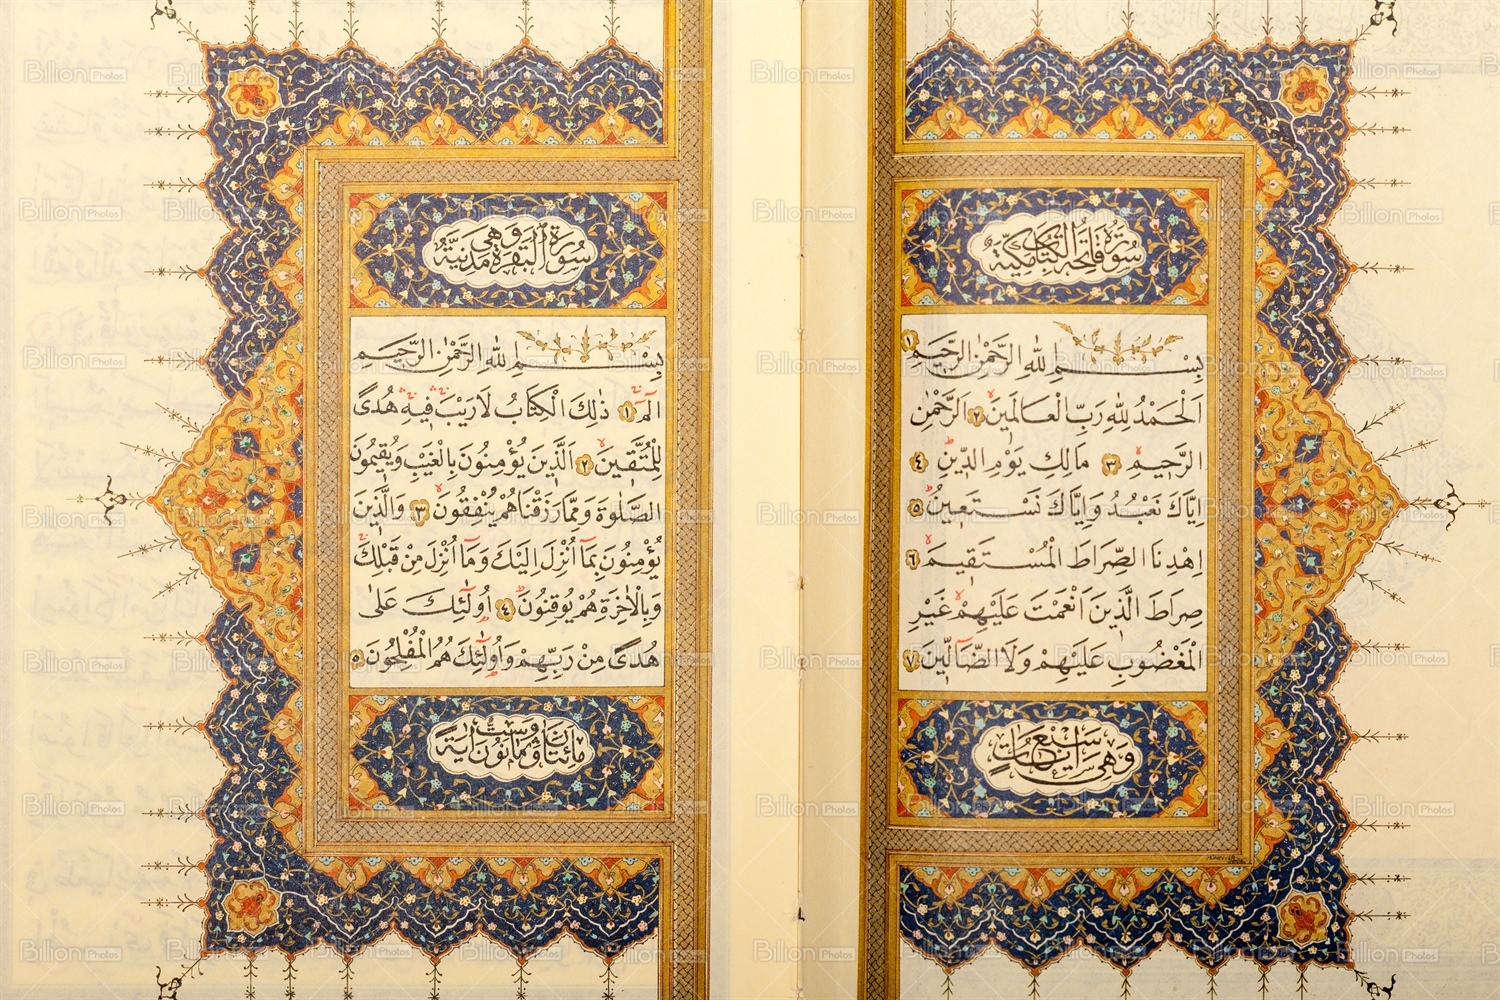 سُورَةُ فَاتِحَةِ الْكِتَابِ مَكِّيَّةٌ
بِسْمِ اللهِ الرَّحْمٰنِ الرَّحِيمِ ١
اَلْحَمْدُ لِلهِ رَبِّ الْعَالَمِينَ ٢ اَلرَّحْمٰنِ
الرَّحِيمِ ٣ مَالِكِ يَوْمِ الدِّينِ ٤
اِيَّاكَ نَعْبُدُ وَاِيَّاكَ نَسْتَعِينُ ٥
اِهْدِنَا الصِّرَاطَ الْمُسْتَقِيمَ ٦
صِرَاطَ الَّذِينَ اَنْعَمْتَ عَلَيْهِمْ غَيْرِ
الْمَغْضُوبِ عَلَيْهِمْ وَلَا الضَّالِّينَ ٧
وَهِىَ سَبْعُ اٰيَاتٍ
سُورَةُ الْبَقَرَةِ وَهِىَ مَدَنِيَّةٌ
بِسْمِ اللهِ الرَّحْمٰنِ الرَّحِيمِ
الٓمٓ ١ ذٰلِكَ الْكِتَابُ لَا رَيْبَ فِيهِ هُدًى
لِلْمُتَّقِينَ ٢ اَلَّذِينَ يُؤْمِنُونَ بِالْغَيْبِ وَيُقِيمُونَ
الصَّلٰوةَ وَمِمَّا رَزَقْنَاهُمْ يُنْفِقُونَ ٣ وَالَّذِينَ
يُؤْمِنُونَ بِمَٓا اُنْزِلَ اِلَيْكَ وَمَٓا اُنْزِلَ مِنْ قَبْلِكَ
وَبِالْاٰخِرَةِ هُمْ يُوقِنُونَ ٤ اُولٰٓئِكَ عَلٰى
هُدًى مِنْ رَبِّهِمْ وَاُولٰٓئِكَ هُمُ الْمُفْلِحُونَ ٥
مِائَتَانِ وَسِتٌّ وَثَمَانُونَ اٰيَةً
Billion Photos